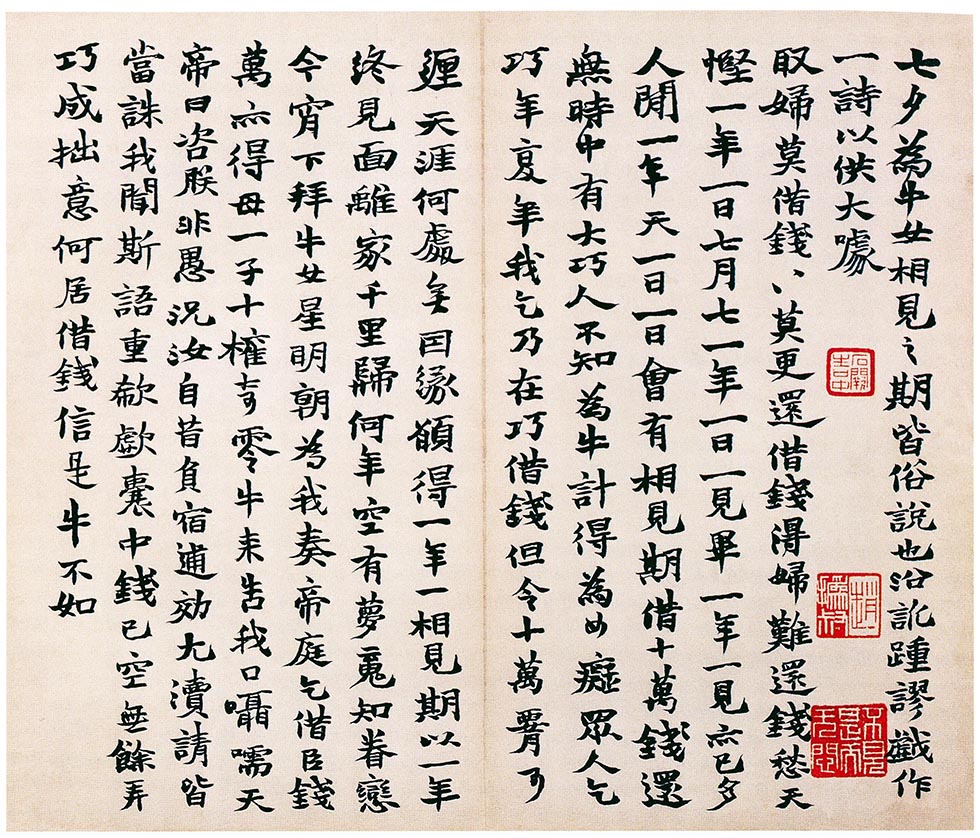 七夕為牛女相見之期皆俗說也沿訛踵謬戲作
一詩以供大噱
取婦莫借錢、莫更還借錢得婦難還錢愁天
慳一年一日七月七一年一日一見畢一年一見亦已多
人閒一年天一日一日會有相見期借十萬錢還
無時中有大巧人不知為牛計得為女癡眾人乞
巧年復年我乞乃在巧借錢但令十萬胥可
廛天涯何處無因緣願得一年一相見期以一年
終見面離家千里歸何年空有夢魂知眷戀
今宵下拜牛女星明朝為我奏帝庭乞借臣錢
萬亦得母一子十權奇零牛來告我口囁嚅天
帝曰咨朕非愚況汝自昔負宿逋效尤瀆請皆
當誅我聞斯語重欷歔囊中錢已空無餘弄
巧成拙意何居借錢信是牛不如
趙撝叔
不見是而无悶